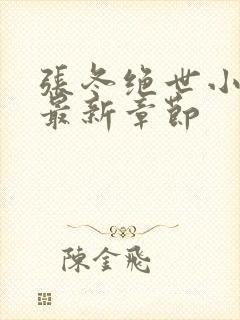 張冬绝世小
最新章節
陳金飛